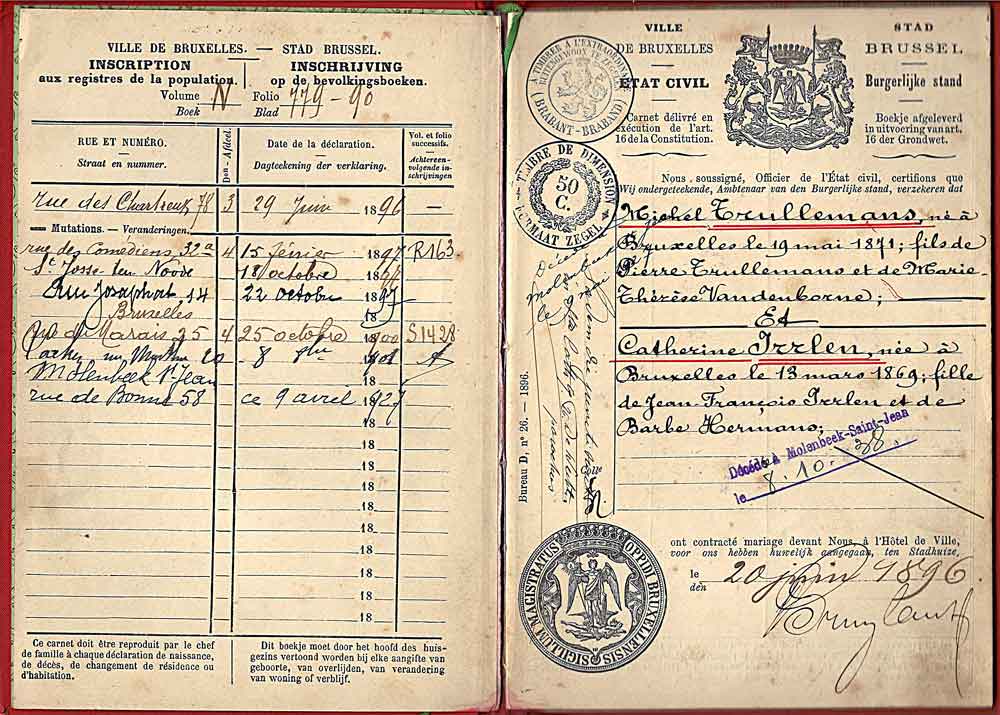 VILLE DE BRUXELLES. — STAD BRUSSEL.
INSCRIPTION INSCHRIJVING
aux registres de la population. op de bevolkingsboeken.
Volume N Folio 779-90
Boek Blad
RUE ET NUMÉRO.
Straat en nummer.
Don - Afdeel.
Date de la déclaration.
Dagteekening der verklaring.
Vol. et folio successifs.
Achtereen-volgende in-schrijvingen
rue des Chartreux 78 3 29 Juin 1896 —
Mutations. — Veranderingen.
rue des Comédiens 32a 4 15 février 1897 R163
St Josse ten Noode 18 octobre 18
Rue Josaphat 14 22 octobre 1897
Bruxelles 18
25 4 25 octobre 1900 S1428
20 8
Molenbeek St Jean 18
rue de Bonne 58 ce 9 avril 1927
18
18
18
18
18
18
18
18
18
18
Ce carnet doit être reproduit par le chef
de famille à chaque déclaration de naissance,
de décès, de changement de résidence ou
d'habitation.
Dit boekje moet door het hoofd des huis-
gezins vertoond worden bij elke aangifte van
geboorte, van overlijden, van verandering
van woning of verblijf.
VILLE STAD
DE BRUXELLES BRUSSEL
ÉTAT CIVIL Burgerlijke stand
Carnet délivré en
exécution de l'art.
16 de la Constitution.
Boekje afgeleverd
in uitvoering van art.
16 der Grondwet.
(BRABANT-BRABAND)
TIMBRE DE DIMENSION
50
C.
FORMAAT ZEGEL
Nous, soussigné, Officier de l'État civil, certifions que
Wij ondergeteekende, Ambtenaar van den Burgerlijke stand, verzekeren dat
Michel Trullemans, né à
Bruxelles le 19 mai 1871; fils de
Pierre Trullemans et de Marie-
Thérèse Vandenborne;
Et
Catherine Irrlen, née à
Bruxelles le 13 mars 1869; fille
de Jean-François Irrlen et de
Barbe Hermans;
Décédé à Molenbeek-Saint-Jean
le 8.10.38.
Bureau D, nº 26. — 1896.
SIGILLUM MAGISTRATUS OPPIDI BRUXELLENSIS
ont contracté mariage devant Nous, à l'Hôtel de Ville,
voor ons hebben huwelijk aangegaan, ten Stadhuize,
le 20 juin 1896.
dén